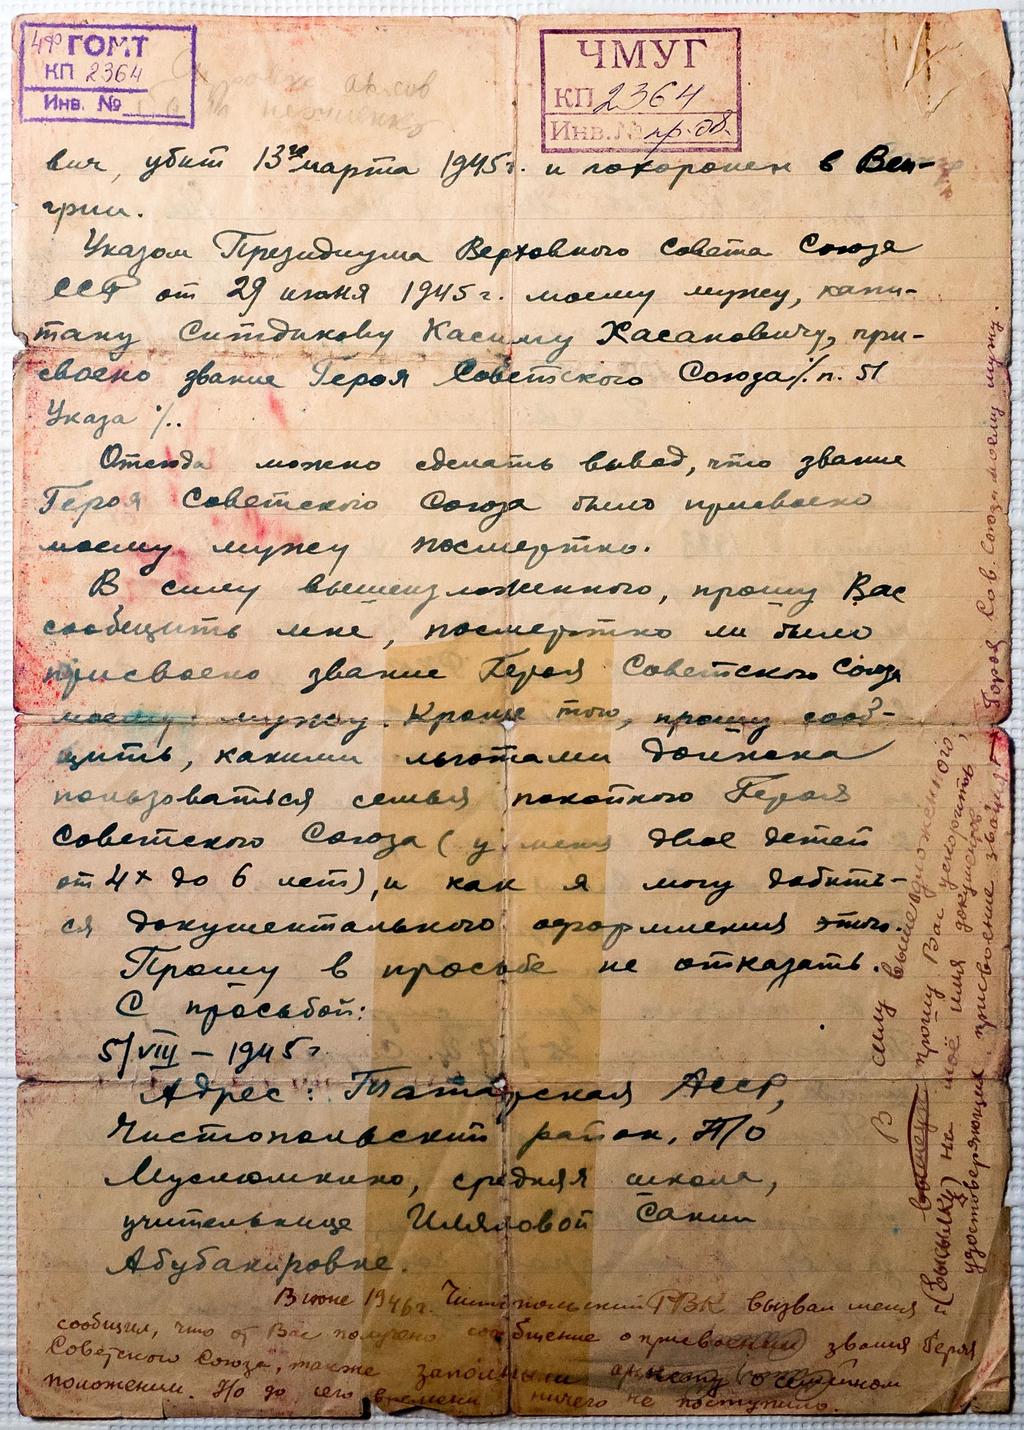 ГОМТ
КП 2364
Инв. №
ЧМУГ
КП 2364
Инв. № пр.об.
вич, убит 13го марта 1945г. и похоронен в Вен-
грии.
Указом Президиума Верховного Совета Союза
ССР от 29 июня 1945г. моему мужу, капи-
тану Ситдикову Касиму Хасановичу, при-
своено звание Героя Советского Союза /. п. 51
Указа /.
Отсюда можно сделать вывод, что звание
Героя Советского Союза было присвоено
моему мужу посмертно.
В силу вышеизложенного, прошу Вас
сообщить мне, посмертно ли было
присвоено звание Героя Советского Союза
моему мужу. Кроме того, прошу сооб-
щить, какими льготами должна
пользоваться семья покойного Героя
Советского Союза (у меня двое детей
от 4х до 6 лет), и как я могу добить-
ся документального оформления этого.
Прошу в просьбе не отказать.
С просьбой:
5/VIII – 1945г.
Адрес: Татарская АССР,
Чистопольский район, П/о
Муслюмкино, средняя школа,
учительнице Иляловой Сании
Абубакировне.
В июне 1946г. Чистопольский РВК вызвал меня и
сообщил, что от Вас получено сообщение о присвоении звания Героя
Советского Союза, также заполнили анкету о семейном
положении. Но до сего времени ничего не поступило.
В силу вышеизложенного,
прошу Вас ускорить
(высылку) на моё имя документов,
удостоверяющих присвоение звания
Героя Сов. Союза моему мужу.